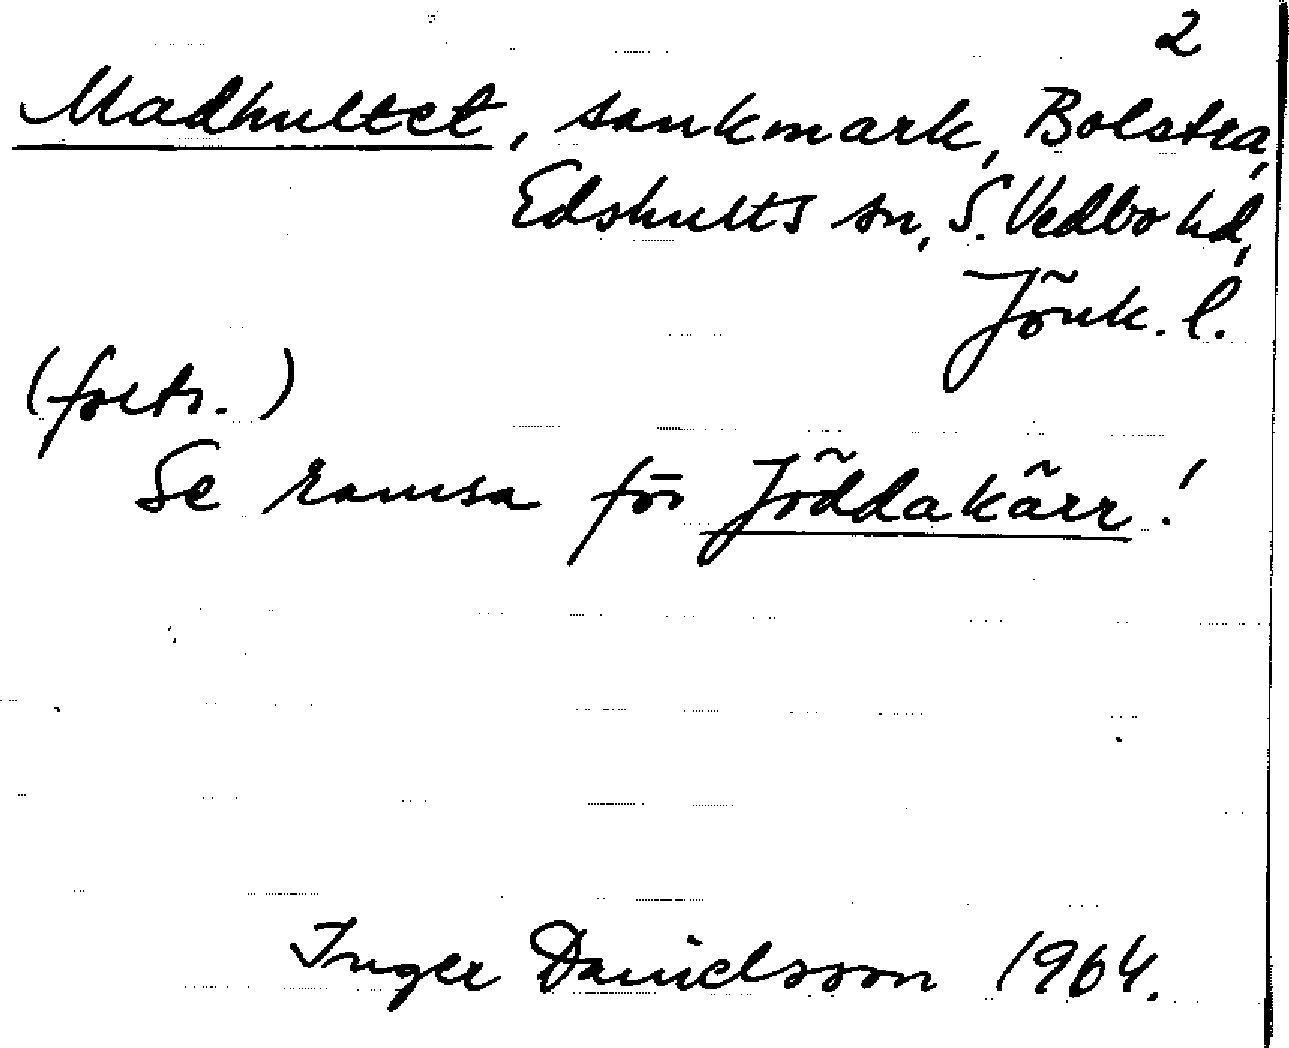 2
Madhultet, sankmark, Bolstra,
Edshults sn, S. Vedbo hd,
Jönk. l.
(forts.)
Se ramsa för Jöddakärr!
Inger Danielsson 1964.